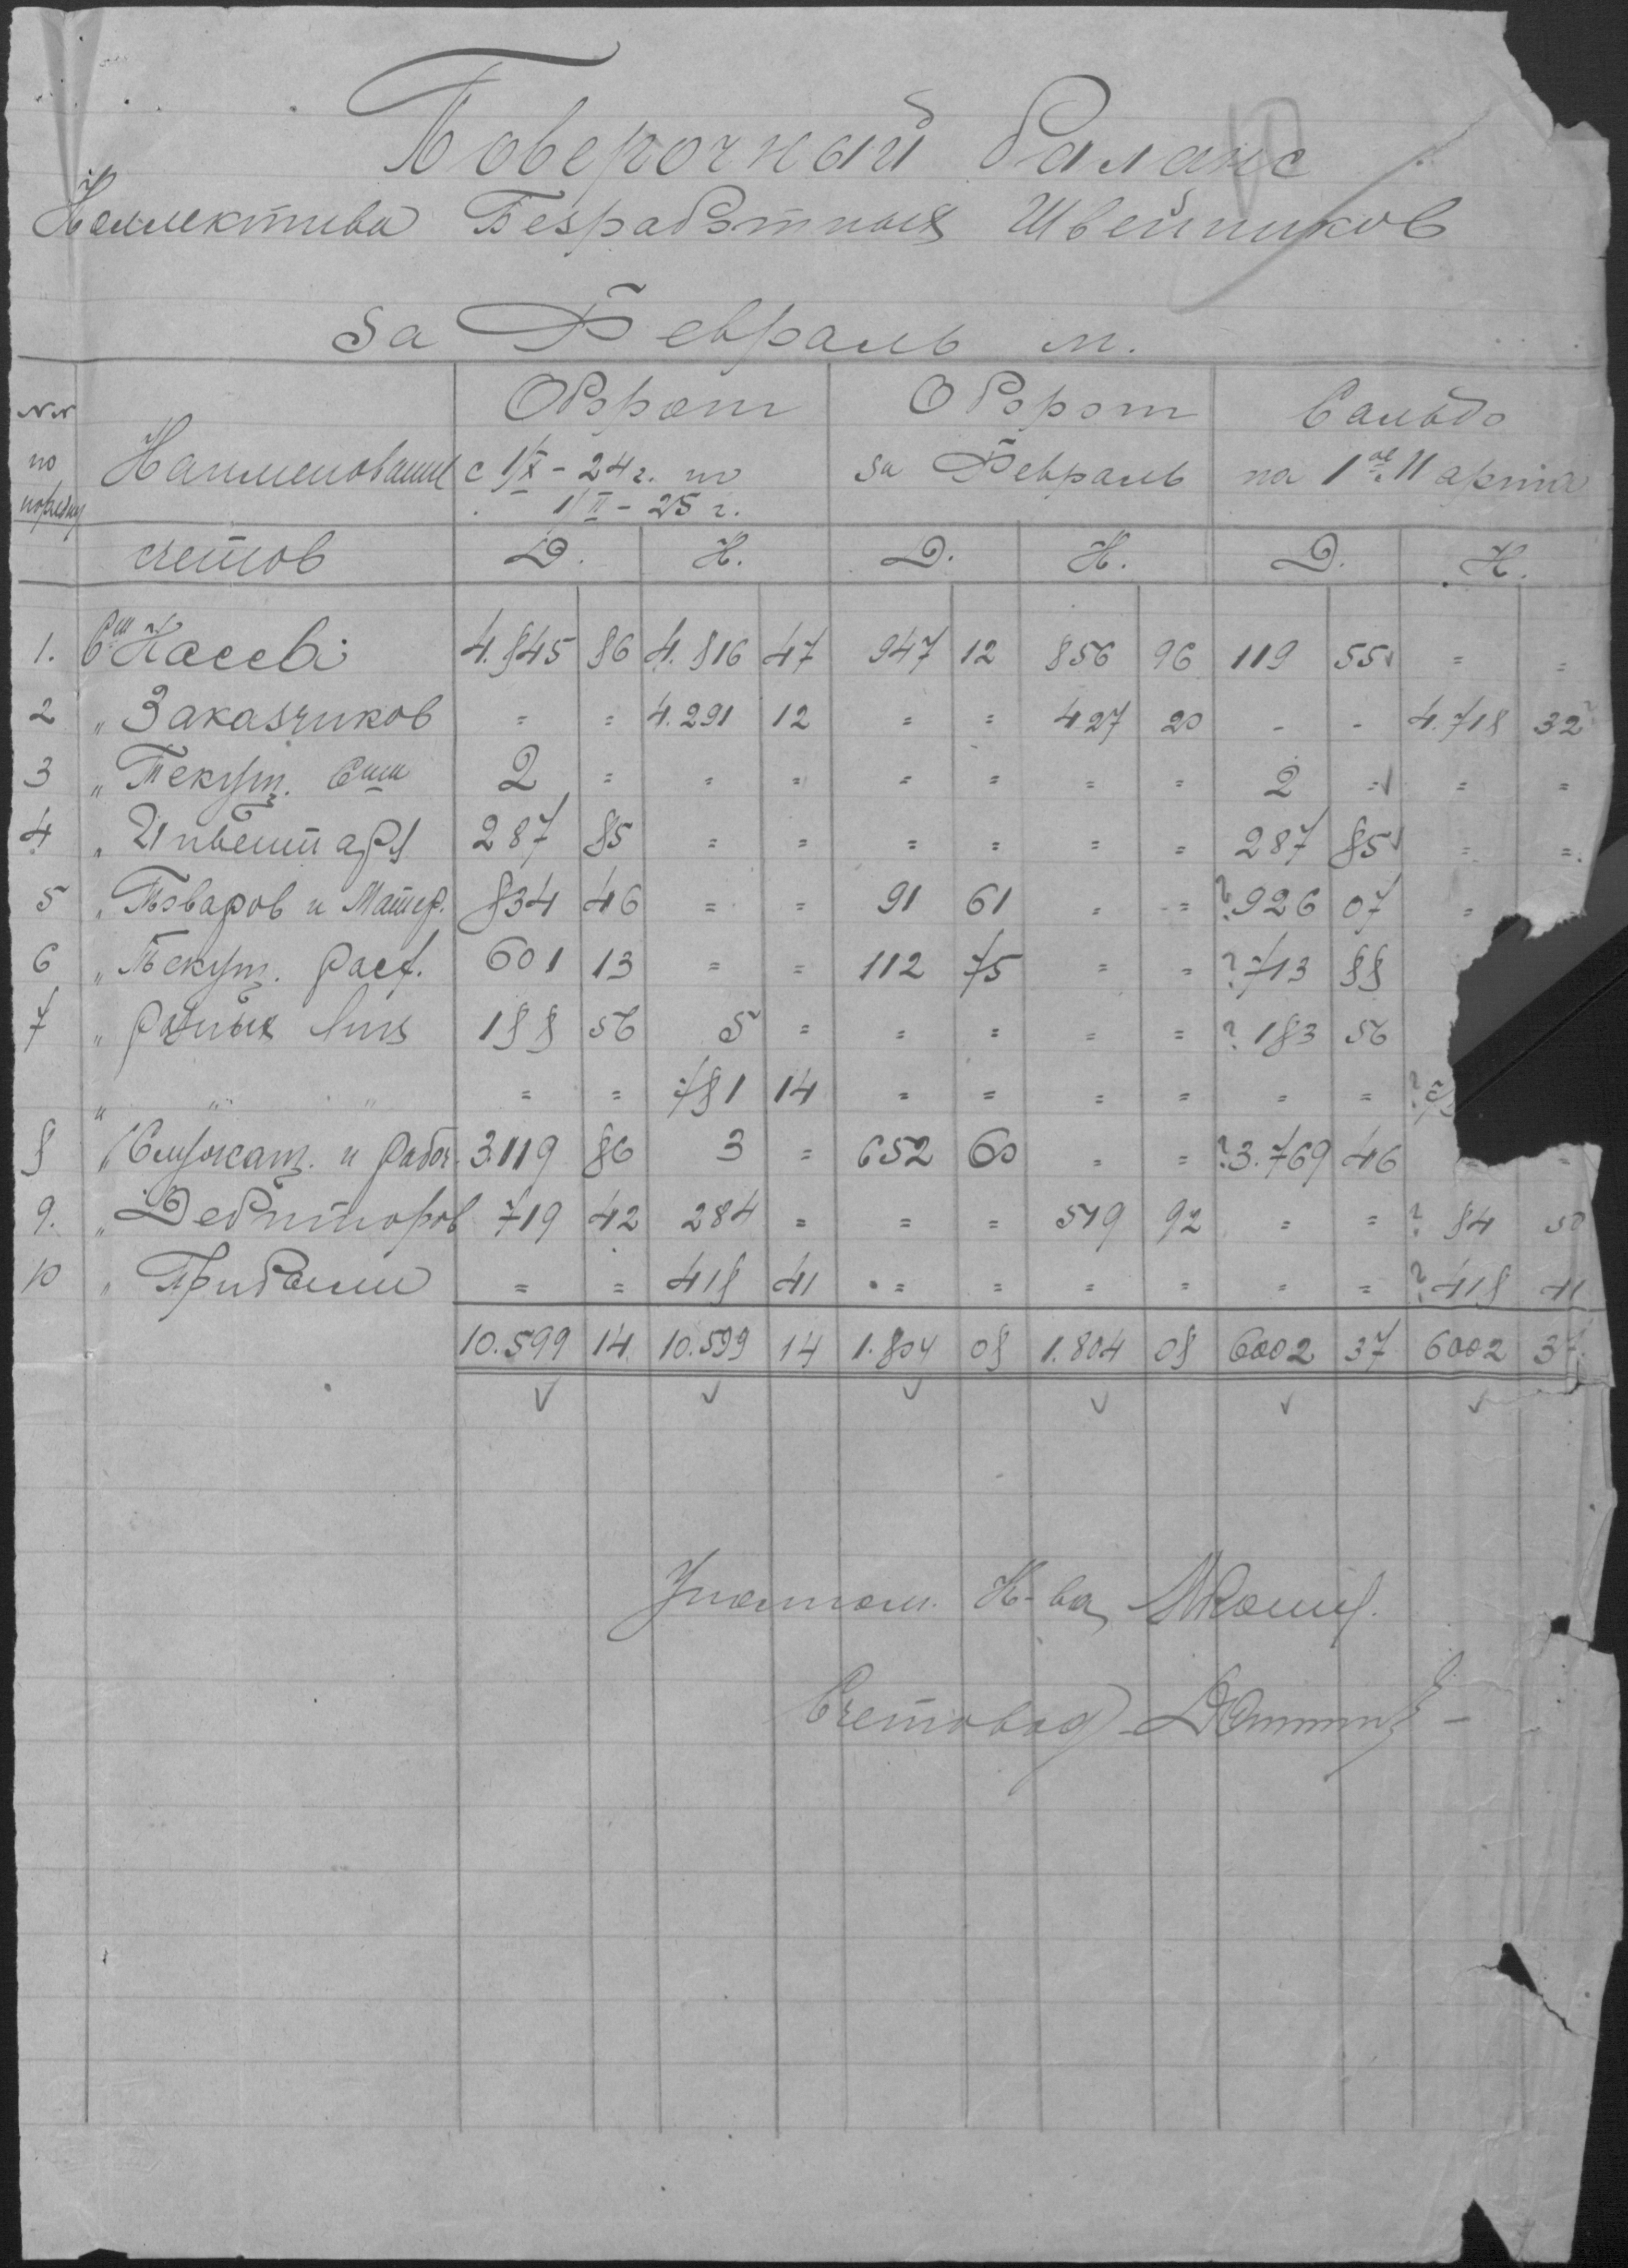 Поверочный баланс
Коллектива Безработных Швейников
за Февраль м.
№№ по порядку
Наименование счетов
Оборот с 1/X - 24 г. по 1/II - 25 г.
Оборот за Февраль
Сальдо на 1ое Марта
Д. К. Д. К. Д. К.
1. Сч Кассы 4.845 86 4.816 47 947 12 856 96 119 55 = =
2 " Заказчиков = = 4.291 12 = = 427 20 - - 4.718 32
3 " Текущ. Счш 2 = = = = = = = 2 = = =
4 " Инвентаря 287 85 = = = = = = 287 85 = =
5 " Товаров и Матер. 834 46 = = 91 61 = = ? 926 07 =
6 " Текущ. расх. 601 13 = = 112 75 = = ? 713 88
7 " разных лиц 188 56 5 = = = = = ? 183 56
" " " = = 781 14 = = = = = = ? 7
8 " Служащ. и рабоч. 3.119 86 3 = 652 60 = = ? 3.769 46 = =
9. " Дебиторов 719 42 284 = = = 519 92 = = ? 84 50
10 " Прибыли = = 418 41 = = = = = = ? 418 41
10.599 14 10.599 14 1.804 08 1.804 08 6002 37 6002 37
Уполном. К-ва
Счетовод